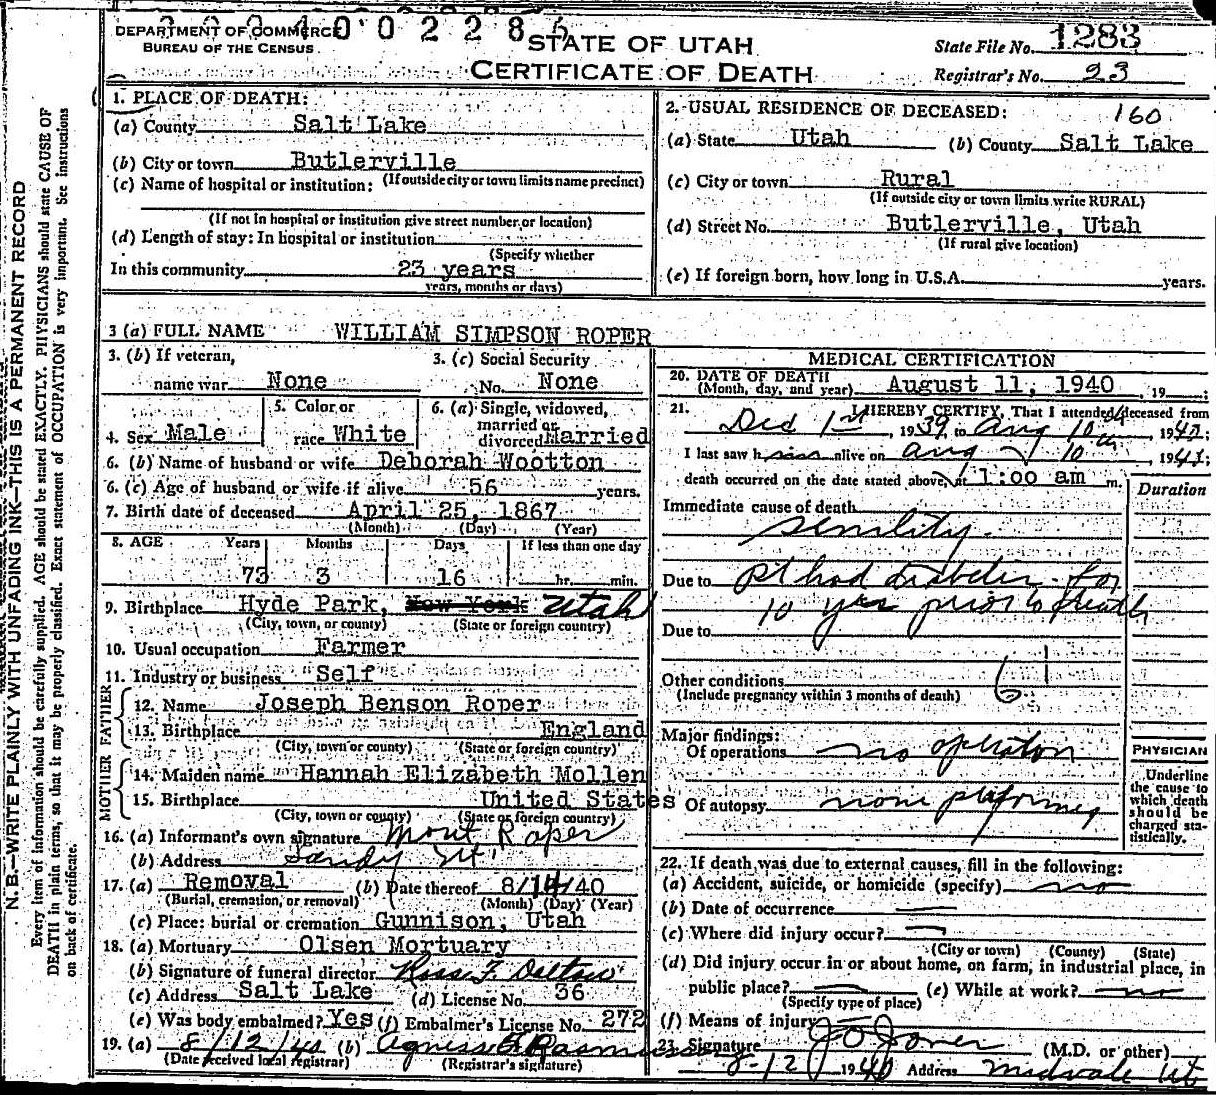 DEPARTMENT OF COMMERCE
BUREAU OF THE CENSUS
STATE OF UTAH
CERTIFICATE OF DEATH
State File No. 1283
Registrar's No. 23
N.B.—WRITE PLAINLY WITH UNFADING INK—THIS IS A PERMANENT RECORD
Every item of information should be carefully supplied. AGE should be stated EXACTLY. PHYSICIANS should state CAUSE OF
DEATH in plain terms, so that it may be properly classified. Exact statement of OCCUPATION is very important. See instructions
on back of certificate.
1. PLACE OF DEATH:
(a) County Salt Lake
(b) City or town Butlerville
(If outside city or town limits name precinct)
(c) Name of hospital or institution:
(If not in hospital or institution give street number or location)
(d) Length of stay: In hospital or institution
(Specify whether
In this community 23 years
years, months or days)
2. USUAL RESIDENCE OF DECEASED: 160
(a) State Utah (b) County Salt Lake
(c) City or town Rural
(If outside city or town limits write RURAL)
(d) Street No. Butlerville, Utah
(If rural give location)
(e) If foreign born, how long in U.S.A. years.
3 (a) FULL NAME WILLIAM SIMPSON ROPER
3. (b) If veteran, name war None
3. (c) Social Security No. None
4. Sex Male
5. Color or race White
6. (a) Single, widowed, married or divorced Married
6. (b) Name of husband or wife Deborah Wootton
6. (c) Age of husband or wife if alive 56 years.
7. Birth date of deceased April 25, 1867
(Month) (Day) (Year)
8. AGE Years Months Days If less than one day
73 3 16 hr. min.
9. Birthplace Hyde Park, New York Utah
(City, town, or county) (State or foreign country)
10. Usual occupation Farmer
11. Industry or business Self
FATHER
12. Name Joseph Benson Roper
13. Birthplace England
(City, town or county) (State or foreign country)
MOTHER
14. Maiden name Hannah Elizabeth Mollen
15. Birthplace United States
(City, town or county) (State or foreign country)
16. (a) Informant's own signature Mont Roper
(b) Address Sandy Ut
17. (a) Removal (b) Date thereof 8/14/40
(Burial, cremation, or removal) (Month) (Day) (Year)
(c) Place: burial or cremation Gunnison, Utah
18. (a) Mortuary Olsen Mortuary
(b) Signature of funeral director
(c) Address Salt Lake (d) License No. 36
(e) Was body embalmed? Yes (f) Embalmer's License No. 272
19. (a) 8/12/40 (b) Agness Rasmussen
(Date received local registrar) (Registrar's signature)
MEDICAL CERTIFICATION
20. DATE OF DEATH
(Month, day, and year) August 11, 1940, 19
21. I HEREBY CERTIFY, That I attended deceased from
Dec 1st, 1939, to Aug 10th, 1940;
I last saw him alive on Aug 10, 1940;
death occurred on the date stated above, at 1:00 am m.
Duration
Immediate cause of death
senility
Due to pt had diabetes for
10 yrs prior to death
Due to
Other conditions 61
(Include pregnancy within 3 months of death)
Major findings:
Of operations no operation
Of autopsy none performed
PHYSICIAN
Underline
the cause to
which death
should be
charged sta-
tistically.
22. If death was due to external causes, fill in the following:
(a) Accident, suicide, or homicide (specify) no
(b) Date of occurrence
(c) Where did injury occur?
(City or town) (County) (State)
(d) Did injury occur in or about home, on farm, in industrial place, in
public place? (e) While at work? no
(Specify type of place)
(f) Means of injury
23. Signature J O Jones (M.D. or other)
8-12 1940 Address Midvale Ut